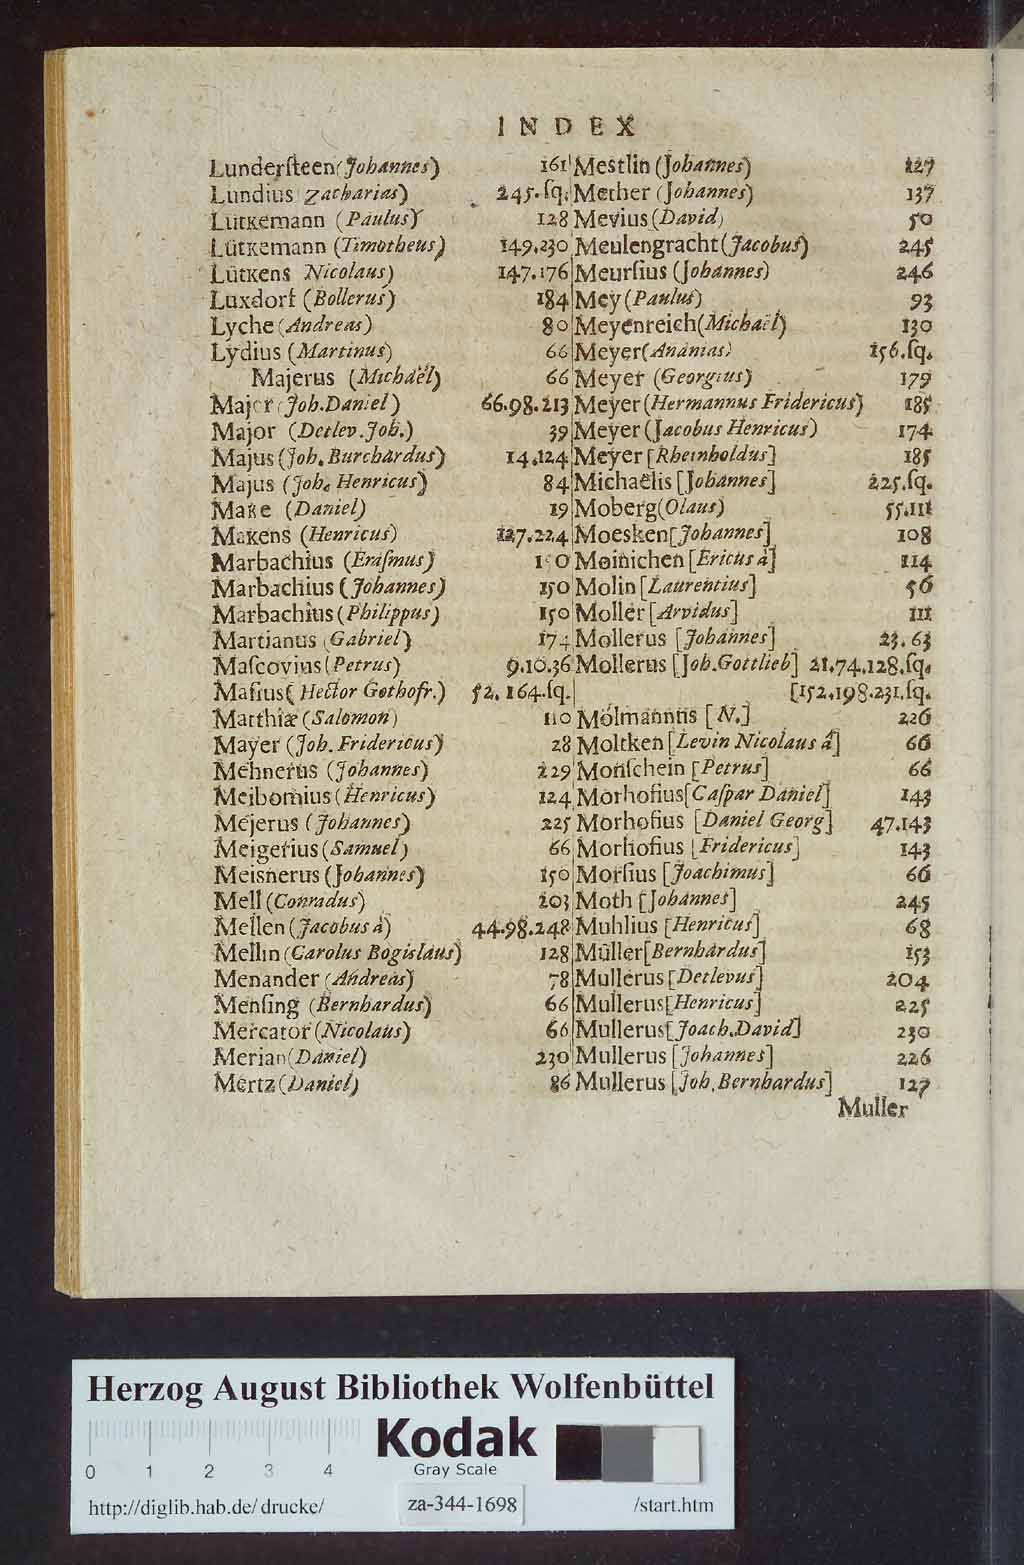 INDEX
Lundersteen (Johannes) 161
Lundius Zacharias) 245. sq.
Lütkemann (Paulus) 128
Lütkemann (Timotheus) 149.230
Lütkens Nicolaus) 147.176
Luxdorf (Bollerus) 184
Lyche (Andreas) 80
Lydius (Martinus) 66
Majerus (Michaël) 66
Major (Joh. Daniel) 66.98.213
Major (Detlev. Joh.) 39
Majus (Joh. Burchardus) 14.124
Majus (Joh. Henricus) 84
Make (Daniel) 19
Makens (Henricus) 127.224
Marbachius (Erasmus) 150
Marbachius (Johannes) 150
Marbachius (Philippus) 150
Martianus (Gabriel) 174
Mascovius (Petrus) 9.10.36
Masius (Hector Gothofr.) 52. 164. sq.
Matthiæ (Salomon) 110
Mayer (Joh. Fridericus) 28
Mehnerus (Johannes) 229
Meibomius (Henricus) 124
Mejerus (Johannes) 225
Meigerius (Samuel) 66
Meisnerus (Johannes) 150
Mell (Conradus) 203
Mellen (Jacobus à) 44.98.248
Mellin (Carolus Bogislaus) 128
Menander (Andreas) 78
Mensing (Bernhardus) 66
Mercator (Nicolaus) 66
Merian (Daniel) 230
Mertz (Daniel) 86
Mestlin (Johannes) 227
Mether (Johannes) 137
Mevius (David) 50
Meulengracht (Jacobus) 245
Meursius (Johannes) 246
Mey (Paulus) 93
Meyenreich (Michaël) 130
Meyer (Ananias) 156. sq.
Meyer (Georgius) 179
Meyer (Hermannus Fridericus) 185
Meyer (Jacobus Henricus) 174
Meyer [Rheinholdus] 185
Michaëlis [Johannes] 225. sq.
Moberg (Olaus) 55.111
Moesken [Johannes] 108
Moinichen [Ericus à] 114
Molin [Laurentius] 56
Moller [Arvidus] 111
Mollerus [Johannes] 23. 63
Mollerus [Joh. Gottlieb] 21.74.128. sq.
[152.198.231. sq.
Mölmannus [N.] 226
Moltken [Levin Nicolaus à] 66
Monschein [Petrus] 66
Morhofius [Caspar Daniel] 143
Morhofius [Daniel Georg] 47.143
Morhofius [Fridericus] 143
Morsius [Joachimus] 66
Moth [Johannes] 245
Muhlius [Henricus] 68
Müller [Bernhardus] 153
Mullerus [Detlevus] 204
Mullerus [Henricus] 225
Mullerus [Joach. David] 230
Mullerus [Johannes] 226
Mullerus [Joh. Bernhardus] 127
Muller
Herzog August Bibliothek Wolfenbüttel
0 1 2 3 4
Kodak
Gray Scale
http://diglib.hab.de/drucke/ za-344-1698 /start.htm